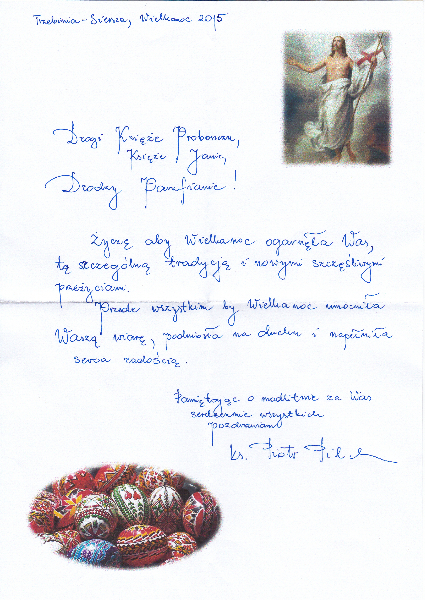 Trzebinia - Siersza, Wielkanoc 2015
Drogi Księże Proboszczu,
Księże Janie,
Drodzy Parafianie!
Życzę aby Wielkanoc ogarnęła Was,
tą szczególną tradycją i nowymi szczęśliwymi
przeżyciami.
Przede wszystkim by Wielkanoc umocniła
Waszą wiarę, podniosła na duchu i napełniła
serca radością.
Pamiętając o modlitwie za Was
serdecznie wszystkich
pozdrawiam
ks. Piotr